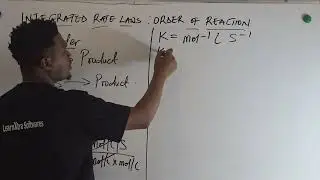 INTEGRATED RATE LAWS : ORDER OF REACTION
Product
Product
K = mol⁻¹ L S⁻¹
K
mol/L x mol/L
LearnXtra Softwares